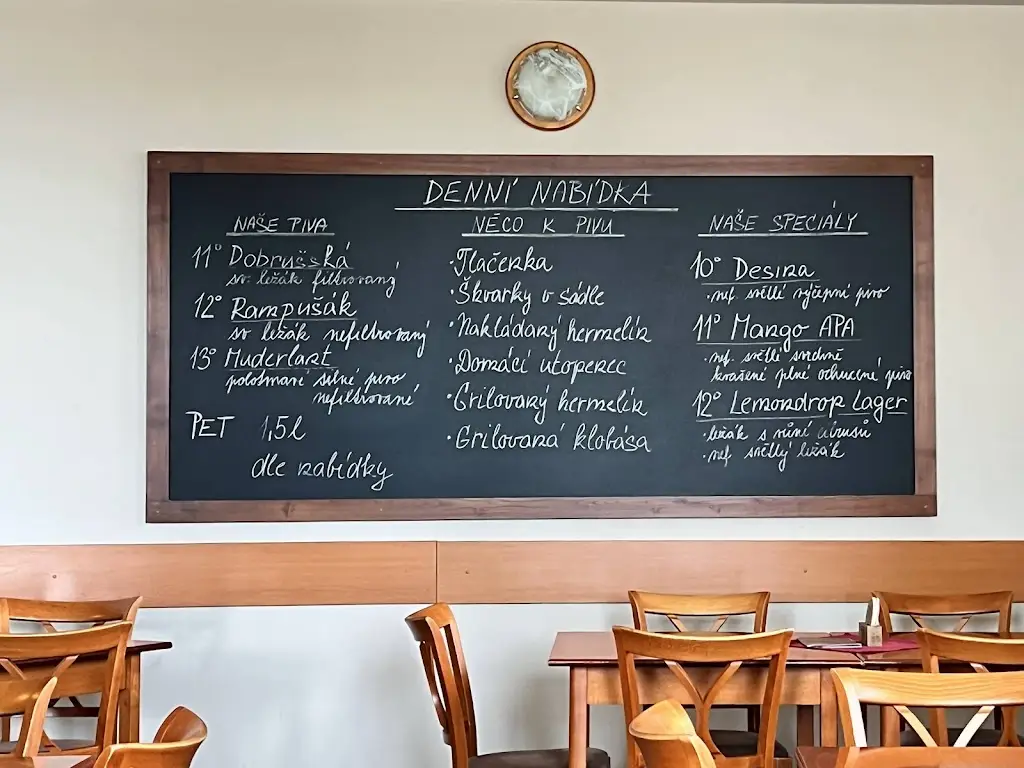 DENNÍ NABÍDKA
NAŠE PIVA
11° Dobrušská
sv. ležák filtrovaný
12° Rampušák
sv ležák nefiltrovaný
13° Muderlant
polotmavé silné pivo
nefiltrované
PET 1,5l
dle nabídky
NĚCO K PIVU
·Tlačenka
·Škvarky v sádle
·Nakládaný hermelín
·Domácí utopenec
·Grilovaný hermelín
·Grilovaná klobása
NAŠE SPECIÁLY
10° Desina
·nef. světlé výčepní pivo
11° Mango APA
·nef. světlé svrchně
kvašené plné ochucené pivo
12° Lemondrop Lager
·ležák s vůní citrusů
·nef. světlý ležák